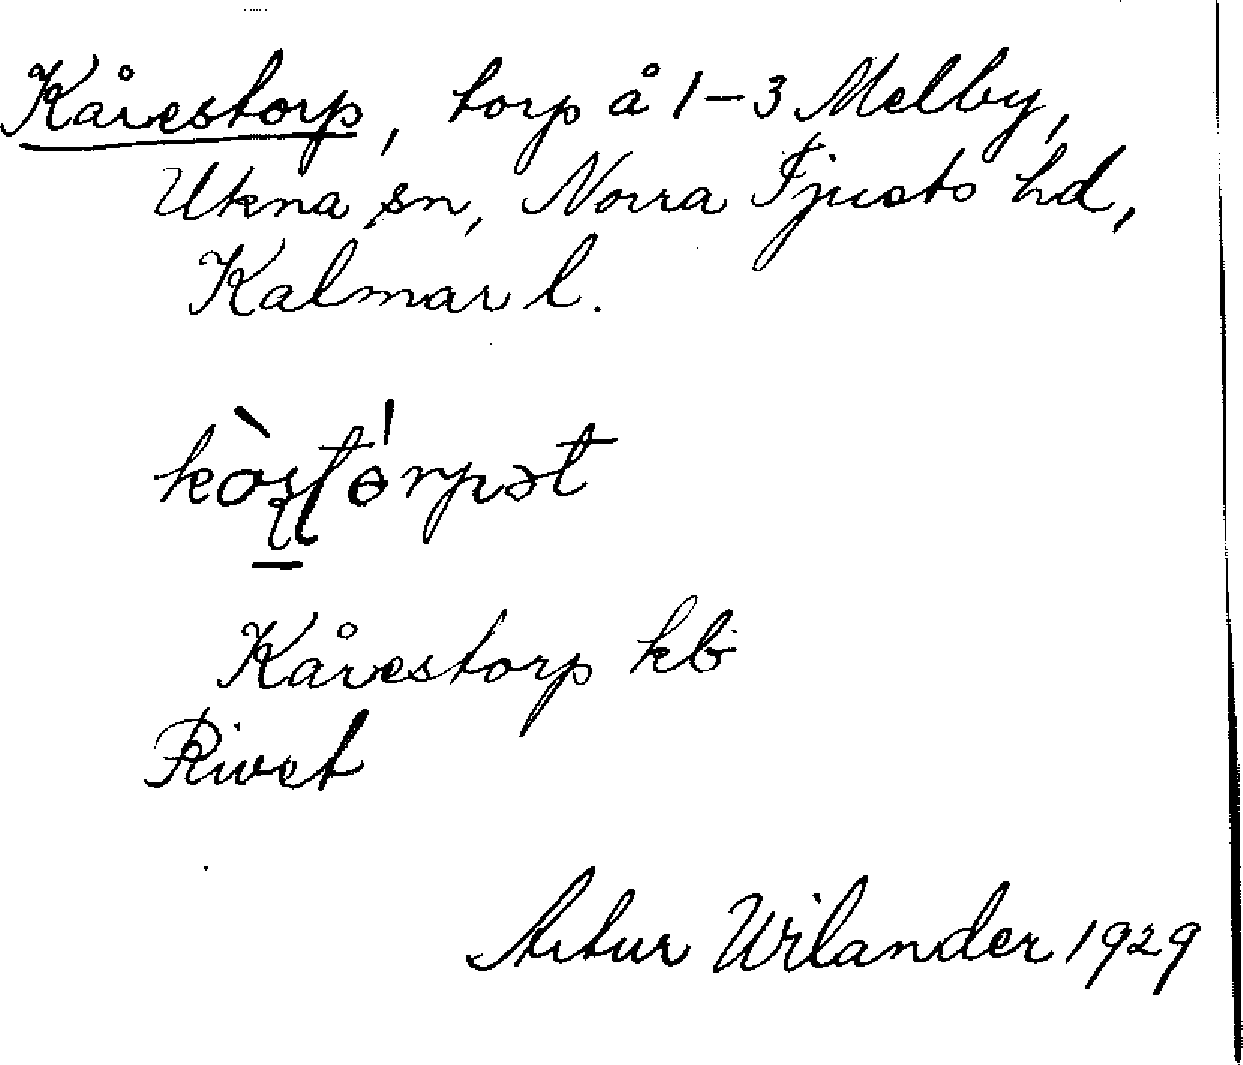 Kårestorp, torp å 1-3 Melby,
Ukna sn, Norra Tjusts hd,
Kalmar l.
Kårestorp kb
Rivet
Artur Wilander 1929